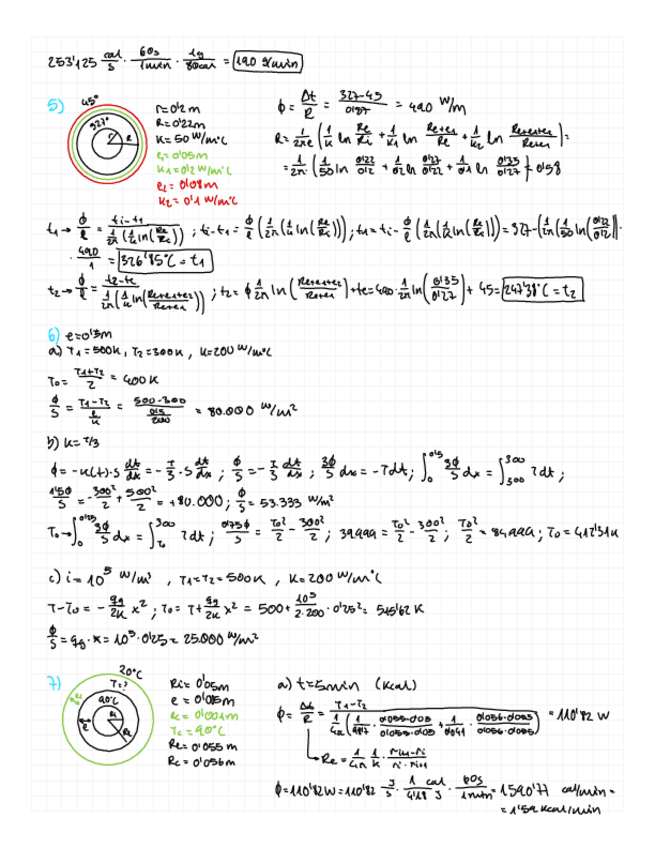 253'125 cal/s · 60s/1min · 1g/80cal = 190 g/min
5) 45° 327° r R
r=0'2 m
R=0'22m
K=50 W/m°C
e₁=0'05m
K₁=0'2 W/m°C
e₂=0'08m
K₂=0'1 W/m°C
ϕ = Δt/R = 327-45/0'57 = 490 W/m
R = 1/2πe (1/K ln Re/Ri + 1/K₁ ln Re+e₁/Re + 1/K₂ ln Re+e₁+e₂/Re+e₁) =
= 1/2π (1/50 ln 0'22/0'2 + 1/0'2 ln 0'27/0'22 + 1/0'1 ln 0'35/0'27) = 0'58
t₁ → ϕ/l = ti-t₁ / 1/2π (1/K ln(Re/Ri)) ; ti-t₁ = ϕ/l (1/2π (1/K ln(Re/Ri))) ; t₁ = ti - ϕ/l (1/2π (1/K ln(Re/Ri))) = 327 - (1/2π (1/50 ln(0'22/0'2))) ·
· 490/1 = 326'85°C = t₁
t₂ → ϕ/l = t₂-te / 1/2π (1/K ln(Re+e₁+e₂/Re+e₁)) ; t₂ = ϕ 1/2π ln (Re+e₁+e₂/Re+e₁) + te = 490 · 1/2π ln (0'35/0'27) + 45 = 247'38°C = t₂
6) e=0'5m
a) T₁=500K, T₂=300K, K=200 W/m°C
T₀ = T₁+T₂/2 = 400 K
ϕ/S = T₁-T₂ / e/K = 500-300 / 0'5/200 = 80.000 W/m²
b) K= T/3
ϕ = -K(t)·S dt/dx = -T/3 · S dt/dx ; ϕ/S = -T/3 dt/dx ; 3ϕ/S dx = -Tdt ; ∫₀^0'5 3ϕ/S dx = ∫₅₀₀^300 T dt ;
1'5ϕ/S = -300²/2 + 500²/2 = +80.000 ; ϕ/S = 53.333 W/m²
T₀ → ∫₀^0'25 3ϕ/S dx = ∫_T₀^300 T dt ; 0'75ϕ/S = T₀²/2 - 300²/2 ; 39.999 = T₀²/2 - 300²/2 ; T₀²/2 = 84.999 ; T₀ = 412'31K
c) i = 10⁵ W/m³ , T₁=T₂=500K , K=200 W/m°C
T-T₀ = - qg/2K x² ; T₀ = T + qg/2K x² = 500 + 10⁵/2·200 · 0'25² = 515'62 K
ϕ/S = qg · x = 10⁵ · 0'25 = 25.000 W/m²
7) 20°C T=? 90°C ec e Ri Re
Ri= 0'05m
e = 0'005m
ec = 0'001m
Tc = 90°C
Re= 0'055 m
Rc = 0'056m
a) t=5min (Kcal)
ϕ = Δt/R = T₁-T₂ / 1/4π (1/ · 0'055-0'05/0'055·0'05 + 1/0'041 · 0'056-0'055/0'056·0'055) = 110'82 W
Re = 1/4π 1/K · ri+1-ri/ri·ri+1
ϕ=110'82W = 110'82 J/s · 1 cal/4'18 J · 60s/1min = 1590'71 cal/min =
= 1'59 Kcal/min